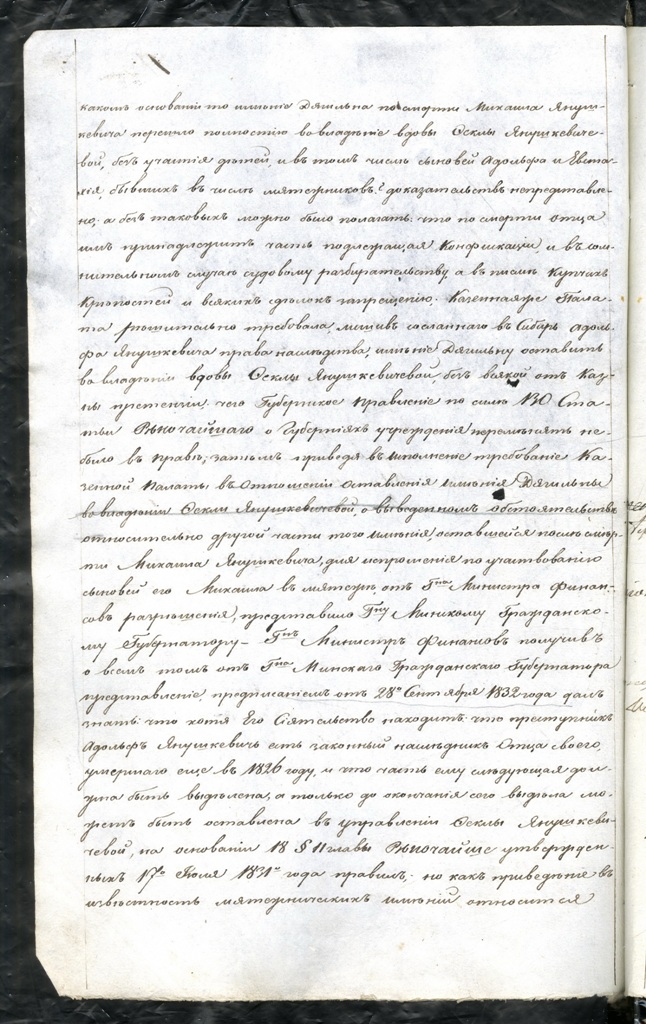 какомъ основаніи то имѣніе Дягильна по смерти Михаила Януш-
кевича перешло полностію во владѣніе вдовы Ѳеклы Янушкевиче-
вой, безъ участія дѣтей, и въ томъ числѣ сыновей Адольфа и Евста-
хія, бывшихъ въ числѣ мятежниковъ? доказательствъ непредставле-
но, а безъ таковыхъ можно было полагать что по смерти отца
имъ принадлежитъ часть подлежащая Конфискаціи, и въ сом-
нительномъ случаѣ судовому разбирательству, а въ письмѣ Купчихъ
Крѣпостей и всякихъ сдѣлокъ запрещенію. Казенная же Пала-
та рѣшительно требовала, лишивъ сосланнаго въ Сибирь Адоль-
фа Янушкевича права наслѣдства, имѣніе Дягильну оставить
во владѣніи вдовы Ѳеклы Янушкевичевой безъ всякой отъ Каз-
ны претензіи, чего Губернское Правленіе по силѣ 130 Ста-
тьи Высочайшаго о Губерніяхъ учрежденія перемѣнять не-
было въ правѣ; затѣмъ приведя въ исполненіе требованіе Ка-
зенной Палаты въ отношеніи оставленія имѣнія Дягильны
во владѣніи Ѳеклы Янушкевичевой, о выведенномъ обстоятельствѣ
относительно другой части того имѣнія, оставшейся послѣ смер-
ти Михаила Янушкевича, для испрошенія по участвованію
сыновей его Михаила въ мятежѣ, отъ Гна Министра Финан-
совъ разрѣшенія, представило Гну Минскому Гражданско-
му Губернатору – Гнъ Министръ Финансовъ получивъ
о всемъ томъ отъ Гна Минскаго Гражданскаго Губернатора
представленіе, предписаніемъ отъ 28го Сентября 1832 года далъ
знать: что хотя Его Сіятельство находитъ что преступникъ
Адольфъ Янушкевичъ есть законный наслѣдникъ Отца своего,
умершаго еще въ 1826 году, и что часть ему слѣдующая дол-
жна быть выдѣлена, а только до окончанія сего выдѣла мо-
жетъ быть оставлена въ управленіи Ѳеклы Янушкеви-
чевой, на основаніи 18 § 11 главы Высочайше утвержден-
ныхъ 17го Іюля 1831го года правилъ; но какъ приведеніе въ
извѣстность мятежническихъ имѣній относится